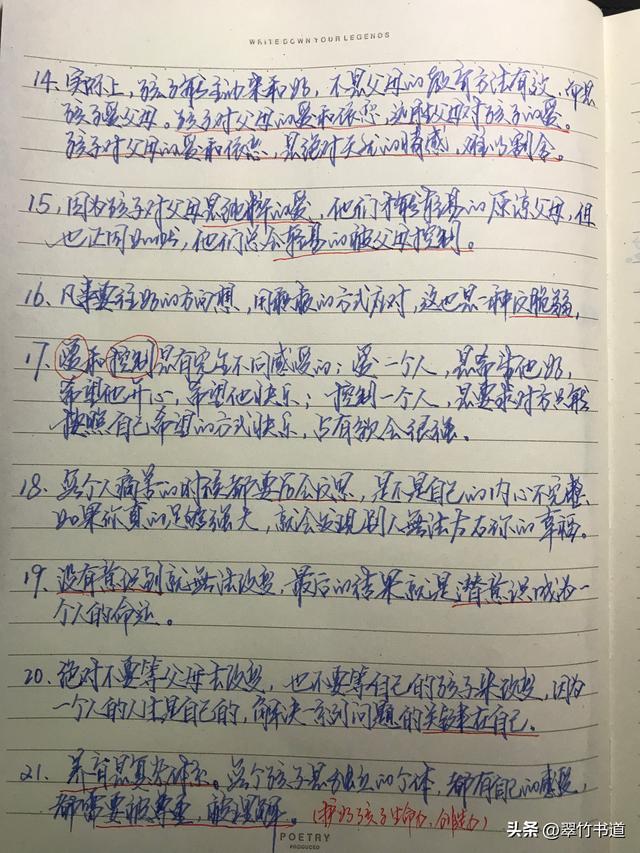 WRITE DOWN YOUR LEGENDS
14. 实际上，孩子能变好，不是父母的教育方法有效，而是
孩子爱父母。孩子对父母的爱和依恋，对孩子的爱。
孩子对父母的爱和依恋，是绝对天然的情感，难以割舍。
15. 因为孩子对父母是纯粹的爱，他们才能轻易的原谅父母，但
也正因如此，他们总会轻易的被父母控制。
16. 凡事要往好的方向想，用积极的方式应对，这也是一种反脆弱。
17. 爱和控制是有完全不同感受的：爱一个人，是希望他好，
希望他开心，希望他快乐；控制一个人，是要求对方只能
按照自己希望的方式快乐，占有欲会很强。
18. 每个人痛苦的时候都要学会反思，是不是自己的内心不完整，
如果你真的足够强大，就会发现别人无法左右你的幸福。
19. 没有意识到就无法改变，最后的结果就是潜意识成为一
个人的命运。
20. 绝对不要等父母去改变，也不要等自己的孩子来改变，因为
一个人的人生是自己的，解决一系列问题的关键在自己。
21. 养育是。每个孩子是独立的个体，都有自己的感受，
都需要被尊重，被理解。（护好孩子生命力、创造力）
POETRY
PRODUCED
头条 @翠竹书道